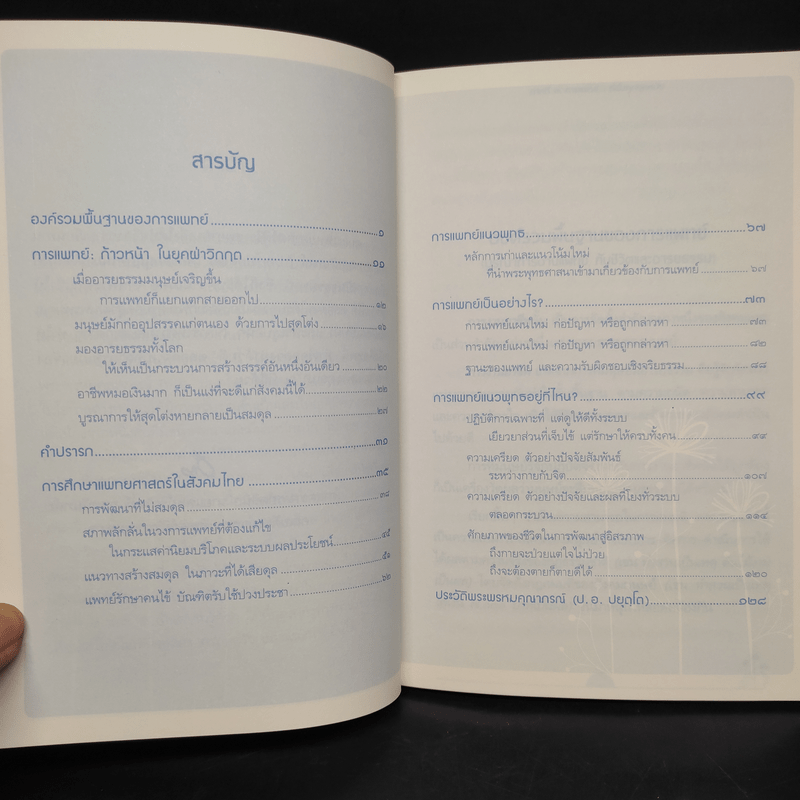 สารบัญ
องค์รวมพื้นฐานของการแพทย์ ๑
การแพทย์: ก้าวหน้า ในยุคฝ่าวิกฤต ๑๑
เมื่ออารยธรรมมนุษย์เจริญขึ้น
การแพทย์ก็แยกแตกสายออกไป ๑๒
มนุษย์มักก่ออุปสรรคแก่ตนเอง ด้วยการไปสุดโต่ง ๑๖
มองอารยธรรมทั้งโลก
ให้เห็นเป็นกระบวนการสร้างสรรค์อันหนึ่งอันเดียว ๒๐
อาชีพหมอเงินมาก ก็เป็นแง่ที่จะดีแก่สังคมนี้ได้ ๒๒
บูรณาการให้สุดโต่งหายกลายเป็นสมดุล ๒๗
คำปรารภ ๓๑
การศึกษาแพทยศาสตร์ในสังคมไทย ๓๕
การพัฒนาที่ไม่สมดุล ๓๘
สภาพลักลั่นในวงการแพทย์ที่ต้องแก้ไข
ในกระแสค่านิยมบริโภคและระบบผลประโยชน์ ๔๕
แนวทางสร้างสมดุล ในภาวะที่ได้เสียดุล ๕๑
แพทย์รักษาคนไข้ บัณฑิตรับใช้ปวงประชา ๖๒
การแพทย์แนวพุทธ ๖๗
หลักการเก่าและแนวโน้มใหม่
ที่นำพระพุทธศาสนาเข้ามาเกี่ยวข้องกับการแพทย์ ๖๗
การแพทย์เป็นอย่างไร? ๗๓
การแพทย์แผนใหม่ ก่อปัญหา หรือถูกกล่าวหา ๗๓
การแพทย์แผนใหม่ ก่อปัญหา หรือถูกกล่าวหา ๘๒
ฐานะของแพทย์ และความรับผิดชอบเชิงจริยธรรม ๘๘
การแพทย์แนวพุทธอยู่ที่ไหน? ๙๙
ปฏิบัติการเฉพาะที่ แต่ดูให้ดีทั้งระบบ
เยียวยาส่วนที่เจ็บไข้ แต่รักษาให้ครบทั้งคน ๙๙
ความเครียด ตัวอย่างปัจจัยสัมพันธ์
ระหว่างกายกับจิต ๑๐๗
ความเครียด ตัวอย่างปัจจัยและผลที่โยงทั่วระบบ
ตลอดกระบวน ๑๑๔
ศักยภาพของชีวิตในการพัฒนาสู่อิสรภาพ
ถึงกายจะป่วยแต่ใจไม่ป่วย
ถึงจะต้องตายก็ตายดีได้ ๑๒๐
ประวัติพระพรหมคุณาภรณ์ (ป. อ. ปยุตฺโต) ๑๒๘